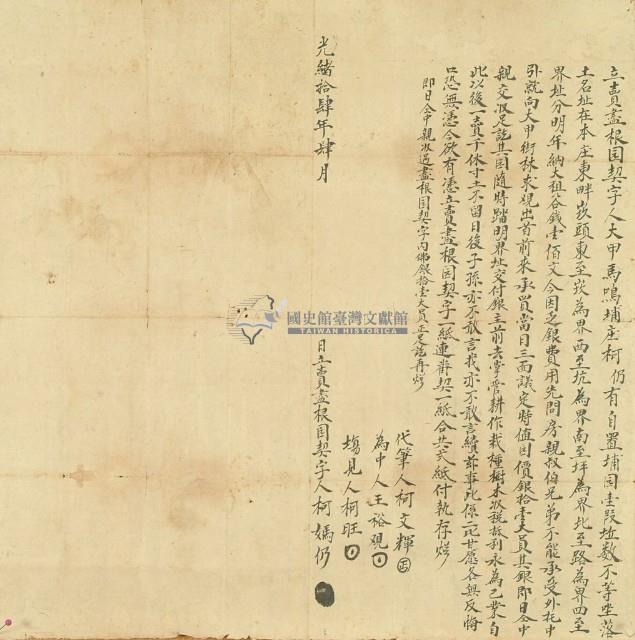 立賣盡根園契字人大甲馬鳴埔庄柯仍有自置埔园壹段坵数不等坐落
土名址在本庄東畔崁頭東至崁為界西至坑為界南至坪為界北至路為界四至
界址分明年納大租谷錢壹佰文今因乏銀費用先問房親叔伯兄弟不能承受外托中
引就向大甲街林求現出首前來承買當日三面議定時值因價銀拾壹大員其銀即日仝中
親交收足訖其园隨時踏明界址交付銀主前去掌管耕作栽種樹木以稅放利永為己業自
此以後一賣千休寸土不留日後子孫亦不敢言找亦不敢言續等事此係二比甘愿各無反悔
口恐無憑今欲有憑立賣盡根园契字一紙連繳契一紙合共弍紙付執存炤
即日仝中親收過盡根园契字內佛銀拾壹大員正足訖再炤
代筆人柯文輝
為中人王裕現
塲見人柯旺
光緒拾肆年肆月 日立賣盡根园契字人柯媽仍
國史館臺灣文獻館
TAIWAN HISTORICA